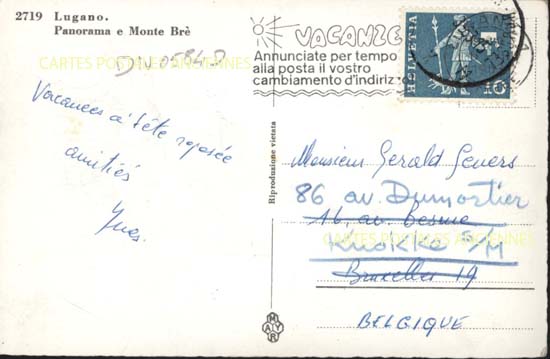 2719 Lugano.
Panorama e Monte Brè
VACANZE
Annunciate per tempo
alla posta il vostro
cambiamento d'indirizzo
HELVETIA
10
CARTES POSTALES ANCIENNES
Vacances d'été reposée
amitiés
Yves.
Riproduzione vietata
Monsieur Gerald
86 av. Dumortier
16, av.
Knokke S/M
Bruxelles 19
BELGIQUE
CARTES POSTALES ANCIENNES
MAYR